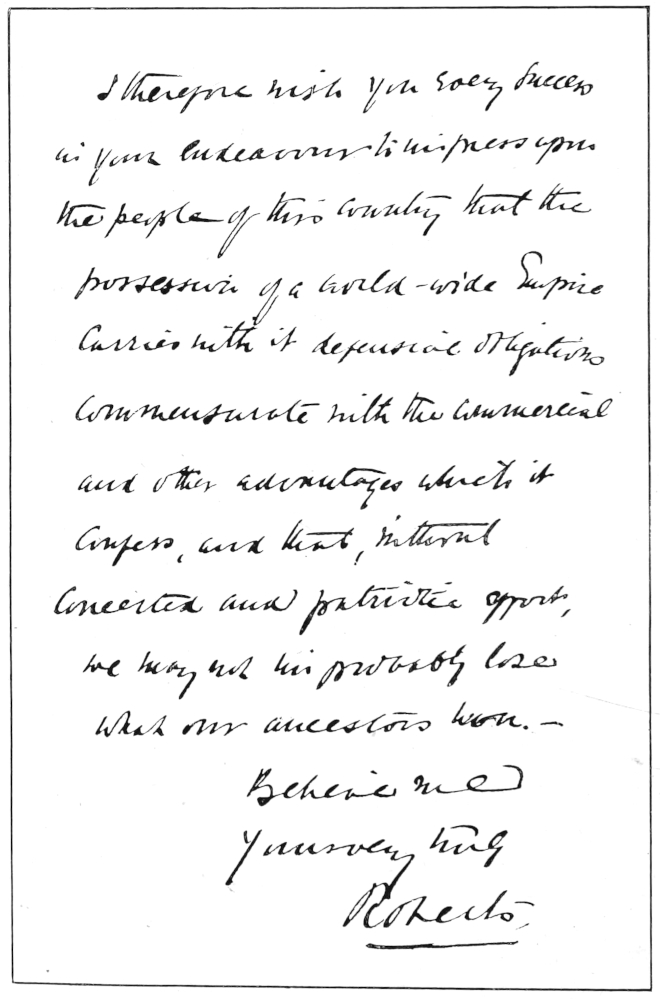 I therefore wish you every success
in your endeavour to impress upon
the people of this country that the
possession of a world-wide Empire
carries with it defensive obligations
commensurate with the commercial
and other advantages which it
confers, and that, without
concerted and patriotic efforts,
we may not improbably lose
what our ancestors won. —
Believe me
Yours very truly
Roberts.